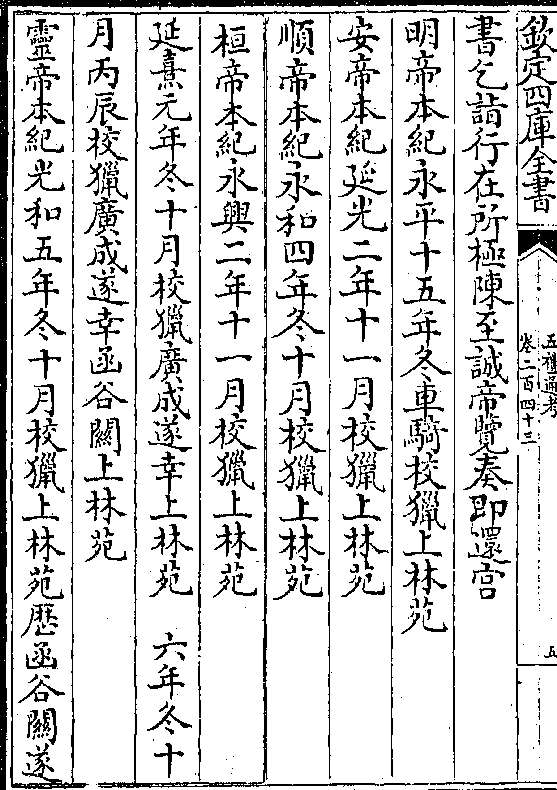 欽定四庫全書
五禮通考
卷二百四十三
五
書乞詣行在所極陳至誠帝覽奏即還宫
明帝本紀永平十五年冬車騎校獵上林苑
安帝本紀延光二年十一月校獵上林苑
順帝本紀永和四年冬十月校獵上林苑
桓帝本紀永興二年十一月校獵上林苑
延熹元年冬十月校獵廣成遂幸上林苑　六年冬十
月丙辰校獵廣成遂幸函谷關上林苑
靈帝本紀光和五年冬十月校獵上林苑歷函谷關遂